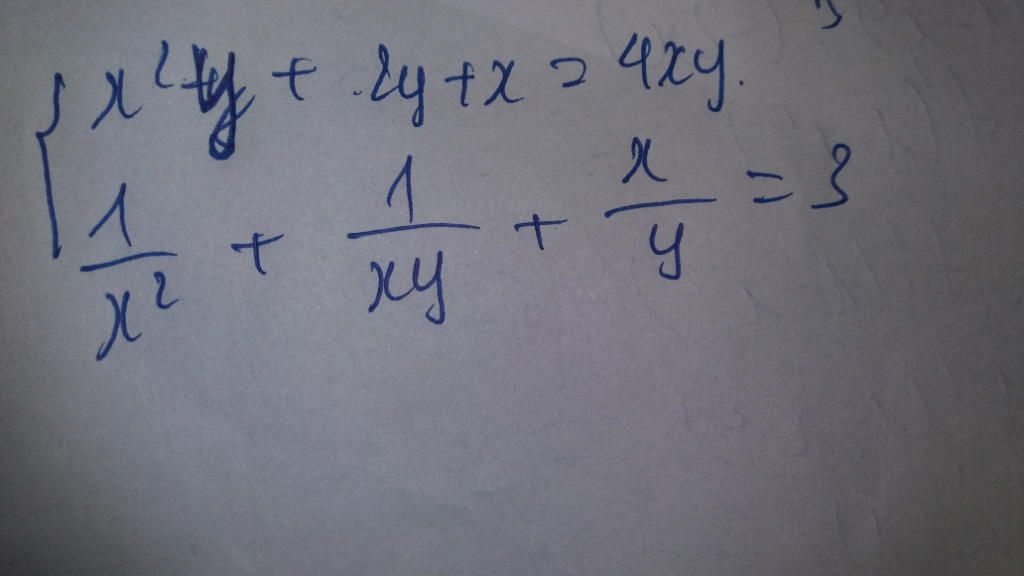 { x²y + 2y + x = 4xy.
1/x² + 1/xy + x/y = 3